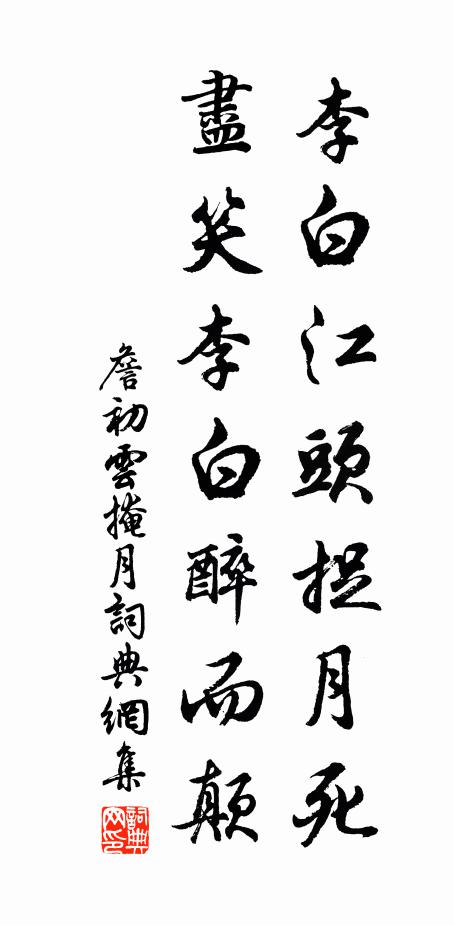 李白江頭捉月死
盡笑李白醉而顛
詹初雲掩月詞典網集
詞典網印